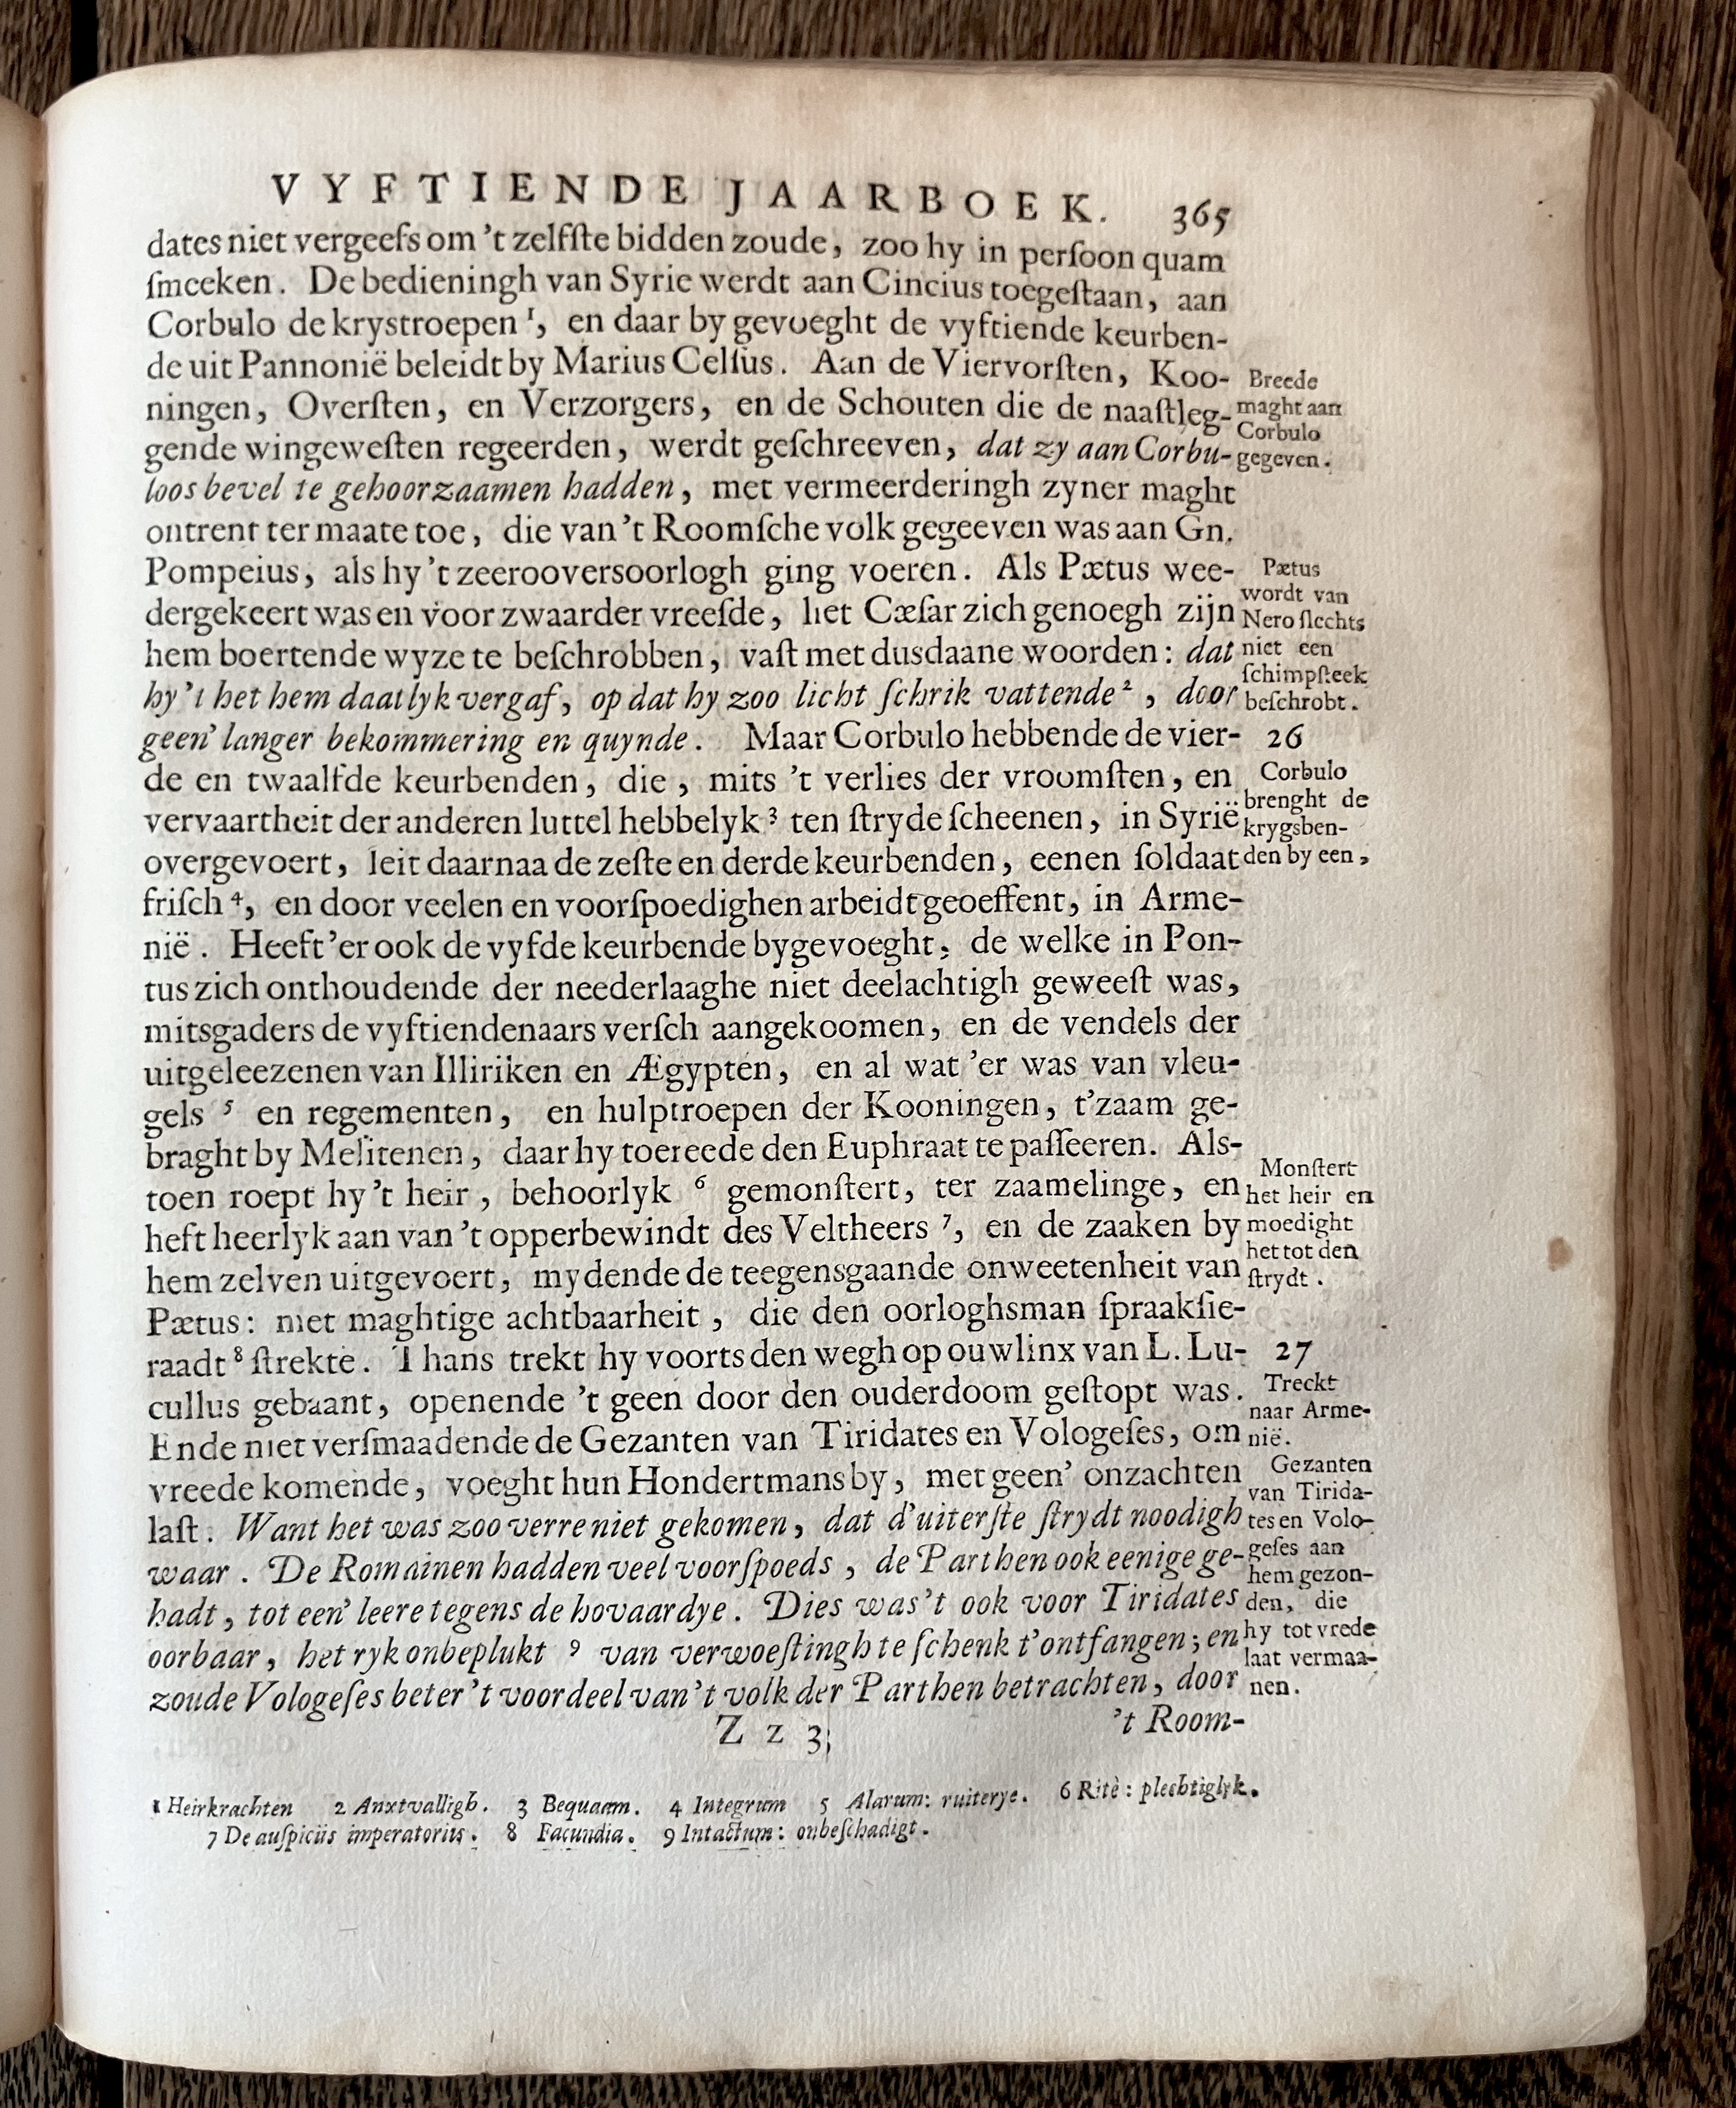 VYFTIENDE JAARBOEK. 365
dates niet vergeefs om 't zelfſte bidden zoude, zoo hy in perſoon quam
ſmeeken. De bedieningh van Syrie werdt aan Cincius toegeſtaan, aan
Corbulo de krystroepen ¹, en daar by gevoeght de vyftiende keurben-
de uit Pannonië beleidt by Marius Celſus. Aan de Viervorſten, Koo-
ningen, Overſten, en Verzorgers, en de Schouten die de naaſtleg-
gende wingeweſten regeerden, werdt geſchreeven, dat zy aan Corbu-
loos bevel te gehoorzaamen hadden, met vermeerderingh zyner maght
ontrent ter maate toe, die van 't Roomſche volk gegeeven was aan Gn.
Pompeius, als hy 't zeerooversoorlogh ging voeren. Als Pætus wee-
dergekeert was en voor zwaarder vreeſde, liet Cæſar zich genoegh zijn
hem boertende wyze te beſchrobben, vaſt met dusdaane woorden: dat
hy 't het hem daatlyk vergaf, op dat hy zoo licht ſchrik vattende ², door
geen' langer bekommering en quynde. Maar Corbulo hebbende de vier-
de en twaalfde keurbenden, die, mits 't verlies der vroomſten, en
vervaartheit der anderen luttel hebbelyk ³ ten ſtryde ſcheenen, in Syrië
overgevoert, leit daarnaa de zeſte en derde keurbenden, eenen ſoldaat
friſch ⁴, en door veelen en voorſpoedighen arbeidt geoeffent, in Arme-
nië. Heeft 'er ook de vyfde keurbende bygevoeght; de welke in Pon-
tus zich onthoudende der neederlaaghe niet deelachtigh geweeſt was,
mitsgaders de vyftiendenaars verſch aangekoomen, en de vendels der
uitgeleezenen van Illiriken en Ægypten, en al wat 'er was van vleu-
gels ⁵ en regementen, en hulptroepen der Kooningen, t'zaam ge-
braght by Melitenen, daar hy toereede den Euphraat te paſſeeren. Als-
toen roept hy 't heir, behoorlyk ⁶ gemonſtert, ter zaamelinge, en
heft heerlyk aan van 't opperbewindt des Veltheers ⁷, en de zaaken by
hem zelven uitgevoert, mydende de teegensgaande onweetenheit van
Pætus: met maghtige achtbaarheit, die den oorloghsman ſpraakſie-
raadt ⁸ ſtrekte. Thans trekt hy voorts den wegh op ouwlinx van L. Lu-
cullus gebaant, openende 't geen door den ouderdoom geſtopt was.
Ende niet verſmaadende de Gezanten van Tiridates en Vologeſes, om
vreede komende, voeght hun Hondertmans by, met geen' onzachten
laſt. Want het was zoo verre niet gekomen, dat d'uiterſte ſtrydt noodigh
waar. De Romainen hadden veel voorſpoeds, de Parthen ook eenige ge-
hadt, tot een' leere tegens de hovaardye. Dies was 't ook voor Tiridates
oorbaar, het ryk onbeplukt ⁹ van verwoeſtingh te ſchenk t'ontfangen; en
zoude Vologeſes beter 't voordeel van 't volk der Parthen betrachten, door
Z z 3 't Room-
Breede
maght aan
Corbulo
gegeven.
Pætus
wordt van
Nero ſlechts
niet een
ſchimpſteek
beſchrobt.
26
Corbulo
brenght de
krygsben-
den by een,
Monſtert
het heir en
moedight
het tot den
ſtrydt.
27
Treckt
naar Arme-
nië.
Gezanten
van Tirida-
tes en Volo-
geſes aan
hem gezon-
den, die
hy tot vrede
laat vermaa-
nen.
1 Heirkrachten 2 Anxtvalligh. 3 Bequaam. 4 Integrum 5 Alarum: ruiterye. 6 Ritè: plechtiglyk.
7 De auſpiciis imperatoriis. 8 Facundia. 9 Intactum: onbeſchadigt.